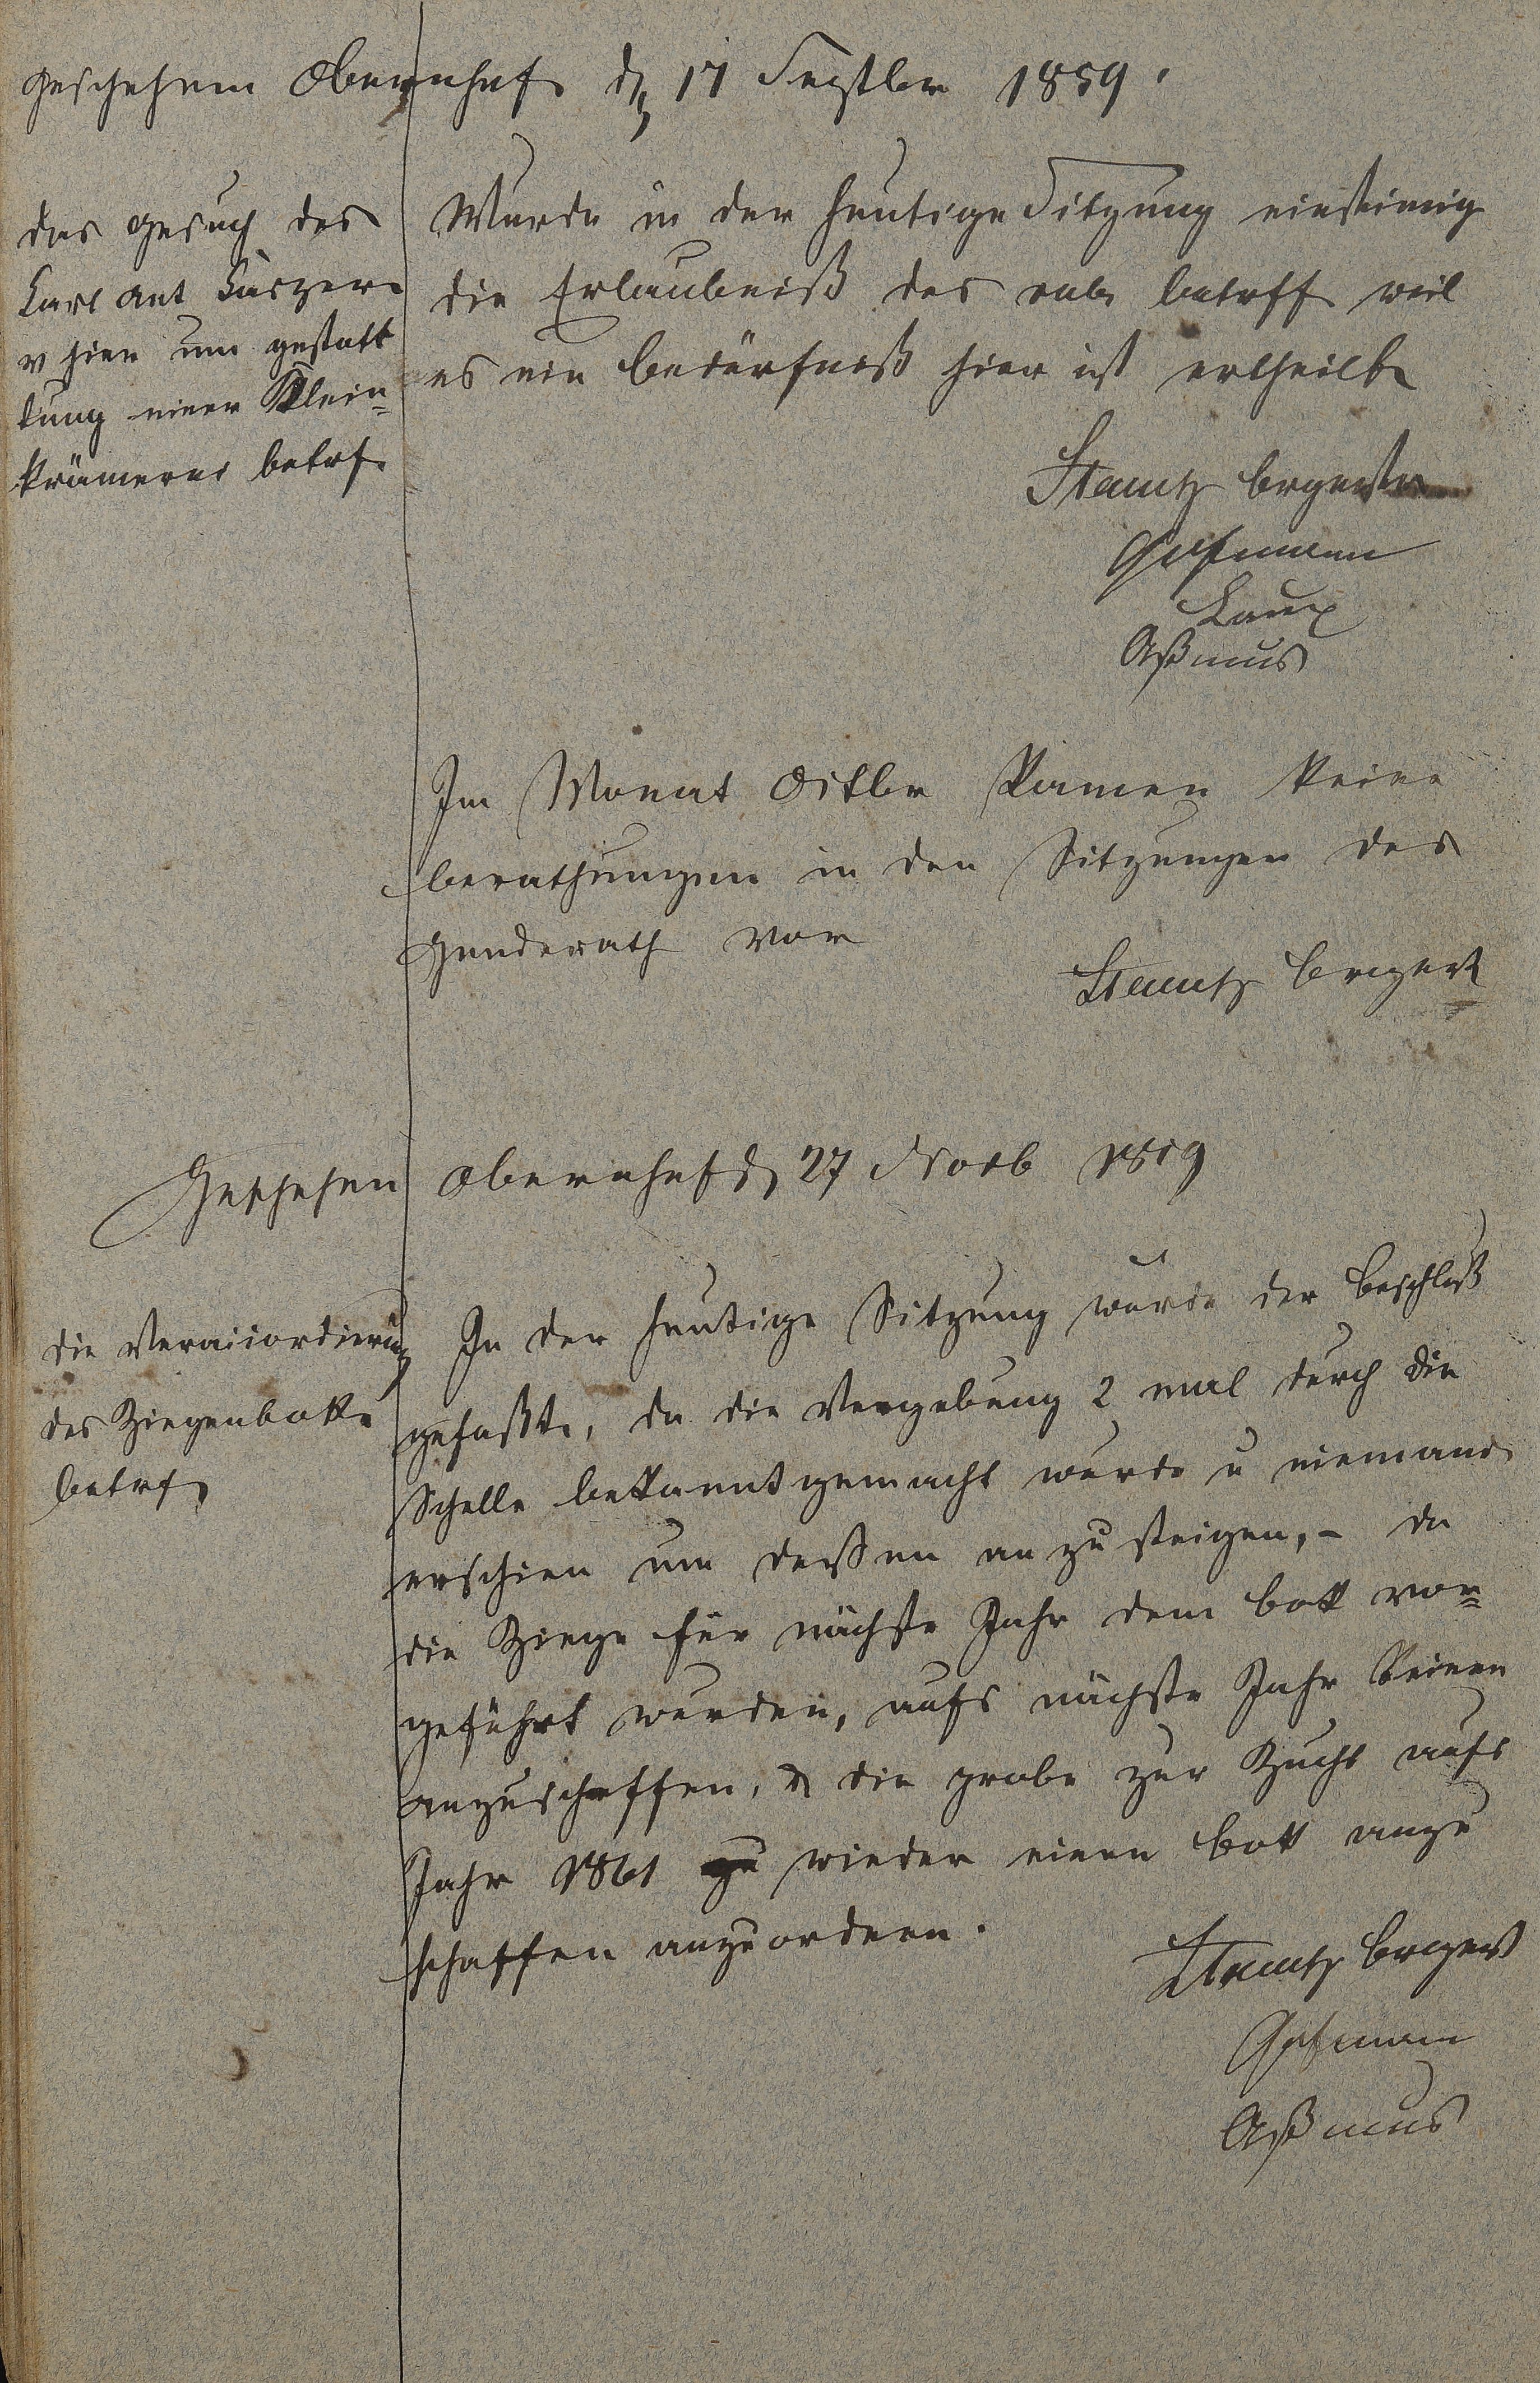 Geschehen Obernhof d 17 Septbr 1859.
das Gesuch des
Karl Ant
v hier um gestatt
tung einer Klein=
krämerei betrf.
Wurde in der heutige Sitzung einstimig
die Erlaubniß des rubr betrff weil
es ein bedürfniß hier ist ertheilt
Stautz brgrmstr
Hofmann
Laux
Aßmus
Im Monat Octbr kamen keine
berathungen in den Sitzungen des
Gmderath vor
Stautz brgrst
Geschehen Obernhof d 27 Novb 1859
die Veraccordierung
des Ziegenbokk
betrf
In der heutige Sitzung wurde der beschluß
gefaßt, da die Vergebung 2 mal durch die
Schelle bekkannt gemacht wurde u niemand
erschien um deßen an zu steigen, - da
die Ziege für nächste Jahr dem bokk vor=
geführt wurden, aufs nächste Jahr keinen
anzuschaffen, & die probe zur Zucht aufs
Jahr 1861 zu wieder einen bokk anzu
schaffen anzuordnen.
Stautz brgrst
Hofmann
Aßmus